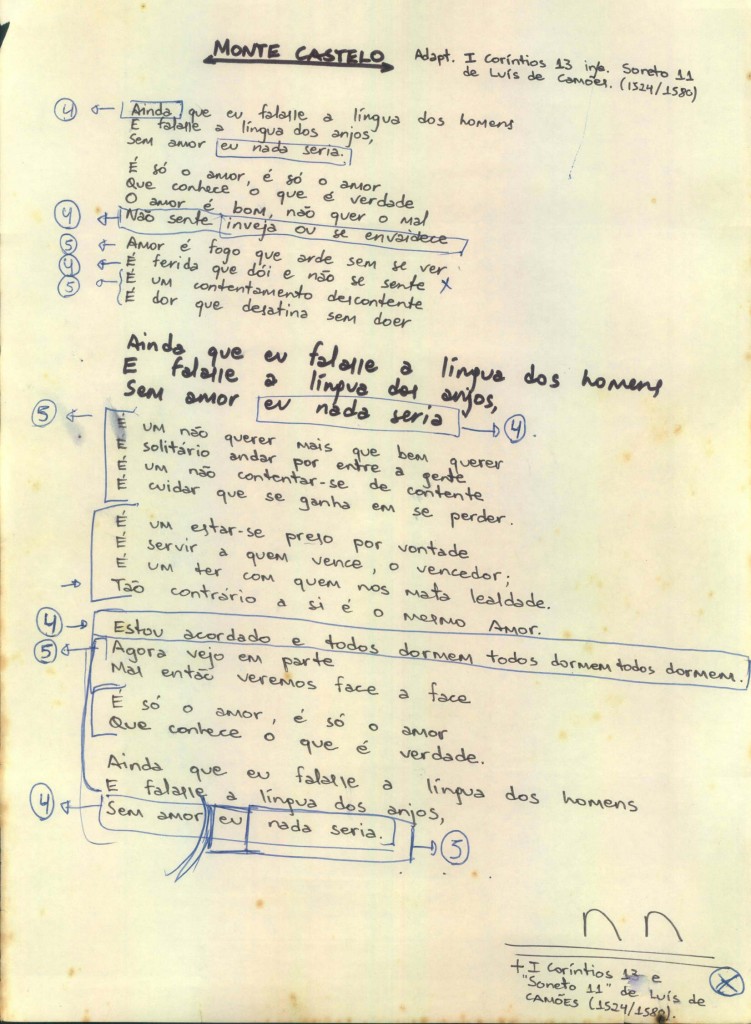 MONTE CASTELO
Adapt. I Coríntios 13 info. Soneto 11
de Luís de Camões. (1524/1580)
4 Ainda que eu falasse a língua dos homens
E falasse a língua dos anjos,
Sem amor eu nada seria.
É só o amor, é só o amor
Que conhece o que é verdade
O amor é bom, não quer o mal
4 Não sente inveja ou se envaidece
5 Amor é fogo que arde sem se ver
4 É ferida que dói e não se sente x
5 É um contentamento descontente
É dor que desatina sem doer
Ainda que eu falasse a língua dos homens
E falasse a língua dos anjos,
Sem amor eu nada seria 4.
5 É um não querer mais que bem querer
É solitário andar por entre a gente
É um não contentar-se de contente
É cuidar que se ganha em se perder.
É um estar-se preso por vontade
É servir a quem vence, o vencedor;
É um ter com quem nos mata lealdade.
Tão contrário a si é o mesmo Amor.
4 Estou acordado e todos dormem todos dormem todos dormem.
5 Agora vejo em parte
Mas então veremos face a face
É só o amor, é só o amor
Que conhece o que é verdade.
Ainda que eu falasse a língua dos homens
E falasse a língua dos anjos,
4 Sem amor eu nada seria. 5
+ I Coríntios 13 e
"Soneto 11" de Luís de
CAMÕES (1524/1580). X